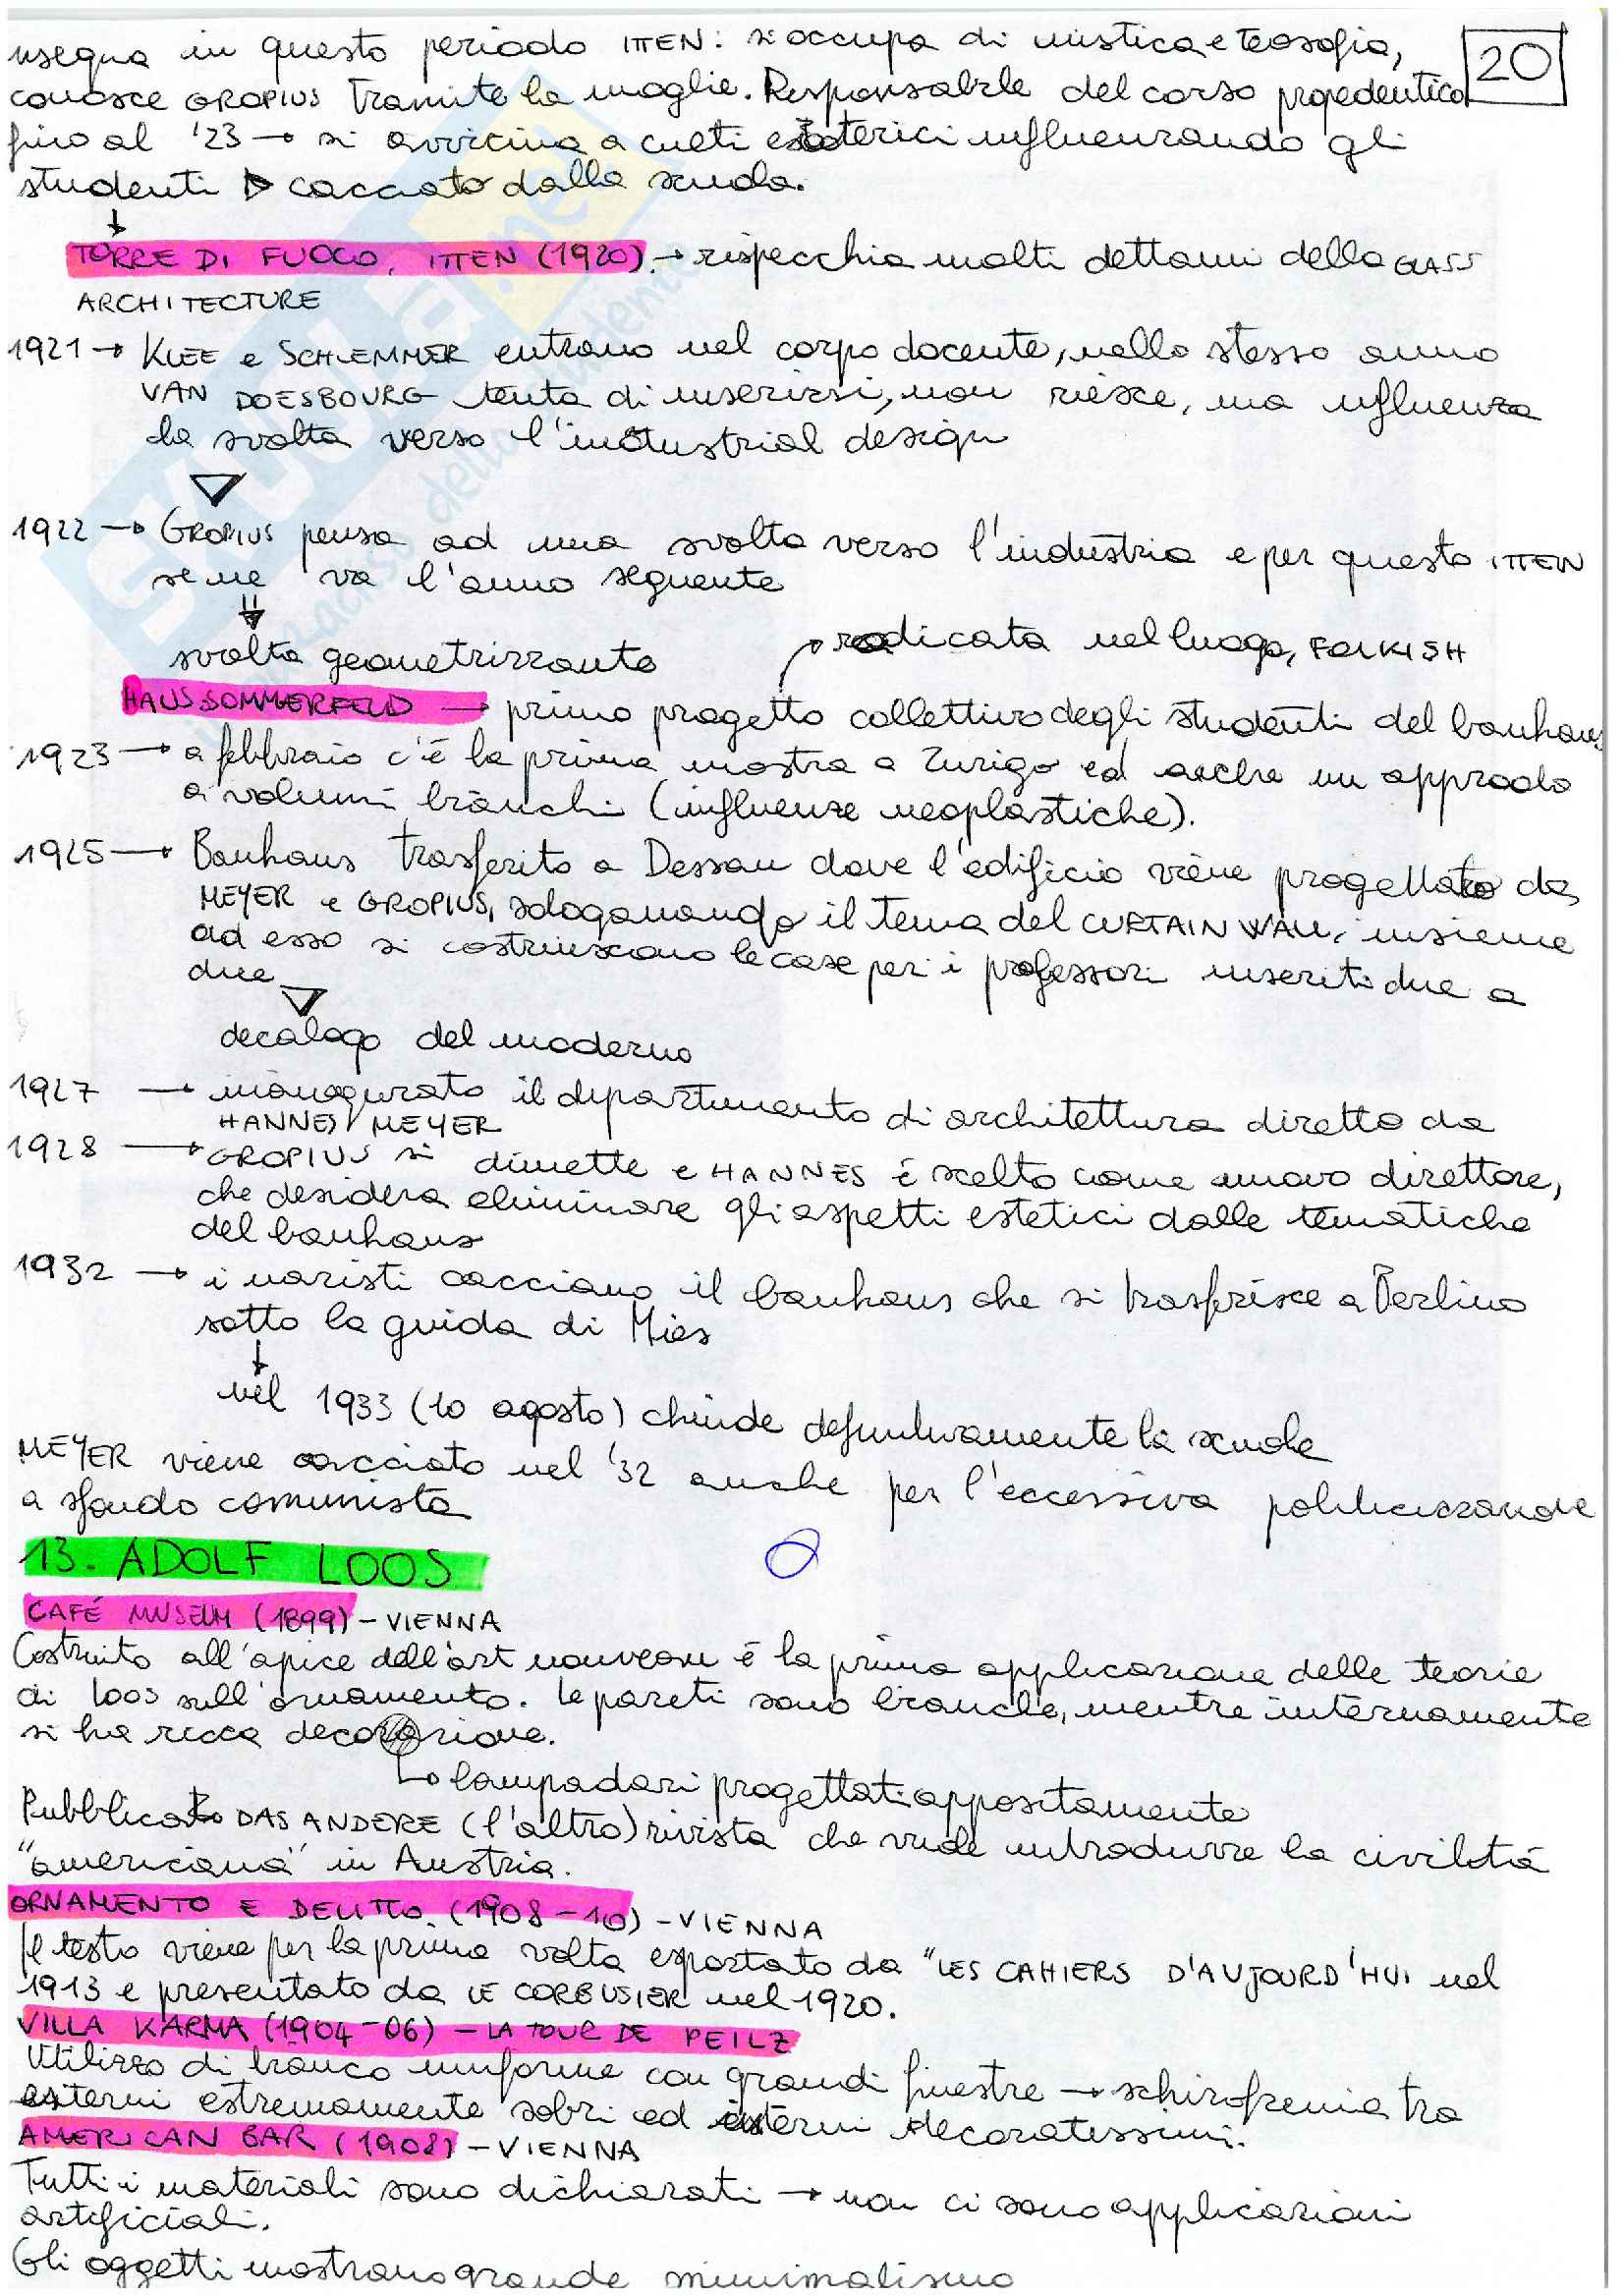 insegna in questo periodo ITTEN: si occupa di mistica e teosofia,
20
conosce GROPIUS tramite la moglie. Responsabile del corso propedeutico
fino al '23 → si avvicina a culti esoterici influenzando gli
studenti ▷ cacciato dalla scuola.
↓
TORRE DI FUOCO, ITTEN (1920) → rispecchia molti dettami della GLASS
ARCHITECTURE
1921 → KLEE e SCHLEMMER entrano nel corpo docente, nello stesso anno
VAN DOESBOURG tenta di inserirsi, non riesce, ma influenza
la svolta verso l'industrial design
▽
1922 → GROPIUS pensa ad una svolta verso l'industria e per questo ITTEN
se ne va l'anno seguente
⇓
svolta geometrizzante
radicata nel luogo, FOLKISH
HAUS SOMMERFELD → primo progetto collettivo degli studenti del bauhaus
1923 → a febbraio c'è la prima mostra a Zurigo ed anche un approdo
a volumi bianchi (influenze neoplastiche).
1925 → Bauhaus trasferito a Dessau dove l'edificio viene progettato da
MEYER e GROPIUS, sdoganando il tema del CURTAIN WALL, insieme
ad esso si costruiscono le case per i professori inseriti due a
due
▽
decalogo del moderno
1927 → inaugurato il dipartimento di architettura diretto da
HANNES MEYER
1928 → GROPIUS si dimette e HANNES è scelto come nuovo direttore,
che desidera eliminare gli aspetti estetici dalle tematiche
del bauhaus
1932 → i nazisti cacciano il bauhaus che si trasferisce a Berlino
sotto la guida di Mies
↓
nel 1933 (10 agosto) chiude definitivamente la scuola
MEYER viene cacciato nel '32 anche per l'eccessiva politicizzazione
a sfondo comunista
13. ADOLF LOOS
CAFÉ MUSEUM (1899) - VIENNA
Costruito all'apice dell'art nouveau è la prima applicazione delle teorie
di Loos sull'ornamento. Le pareti sono bianche, mentre internamente
si ha ricca decorazione.
lampadari progettati appositamente
Pubblicato DAS ANDERE (l'altro) rivista che vuole introdurre la civiltà
"americana" in Austria.
ORNAMENTO E DELITTO (1908-10) - VIENNA
Il testo viene per la prima volta esportato da "LES CAHIERS D'AUJOURD'HUI nel
1913 e presentato da LE CORBUSIER nel 1920.
VILLA KARMA (1904-06) - LA TOUR DE PEILZ
Utilizzo di bianco uniforme con grandi finestre → schizofrenia tra
esterni estremamente sobri ed interni decoratissimi.
AMERICAN BAR (1908) - VIENNA
Tutti i materiali sono dichiarati → non ci sono applicazioni
artificiali.
Gli oggetti mostrano grande minimalismo